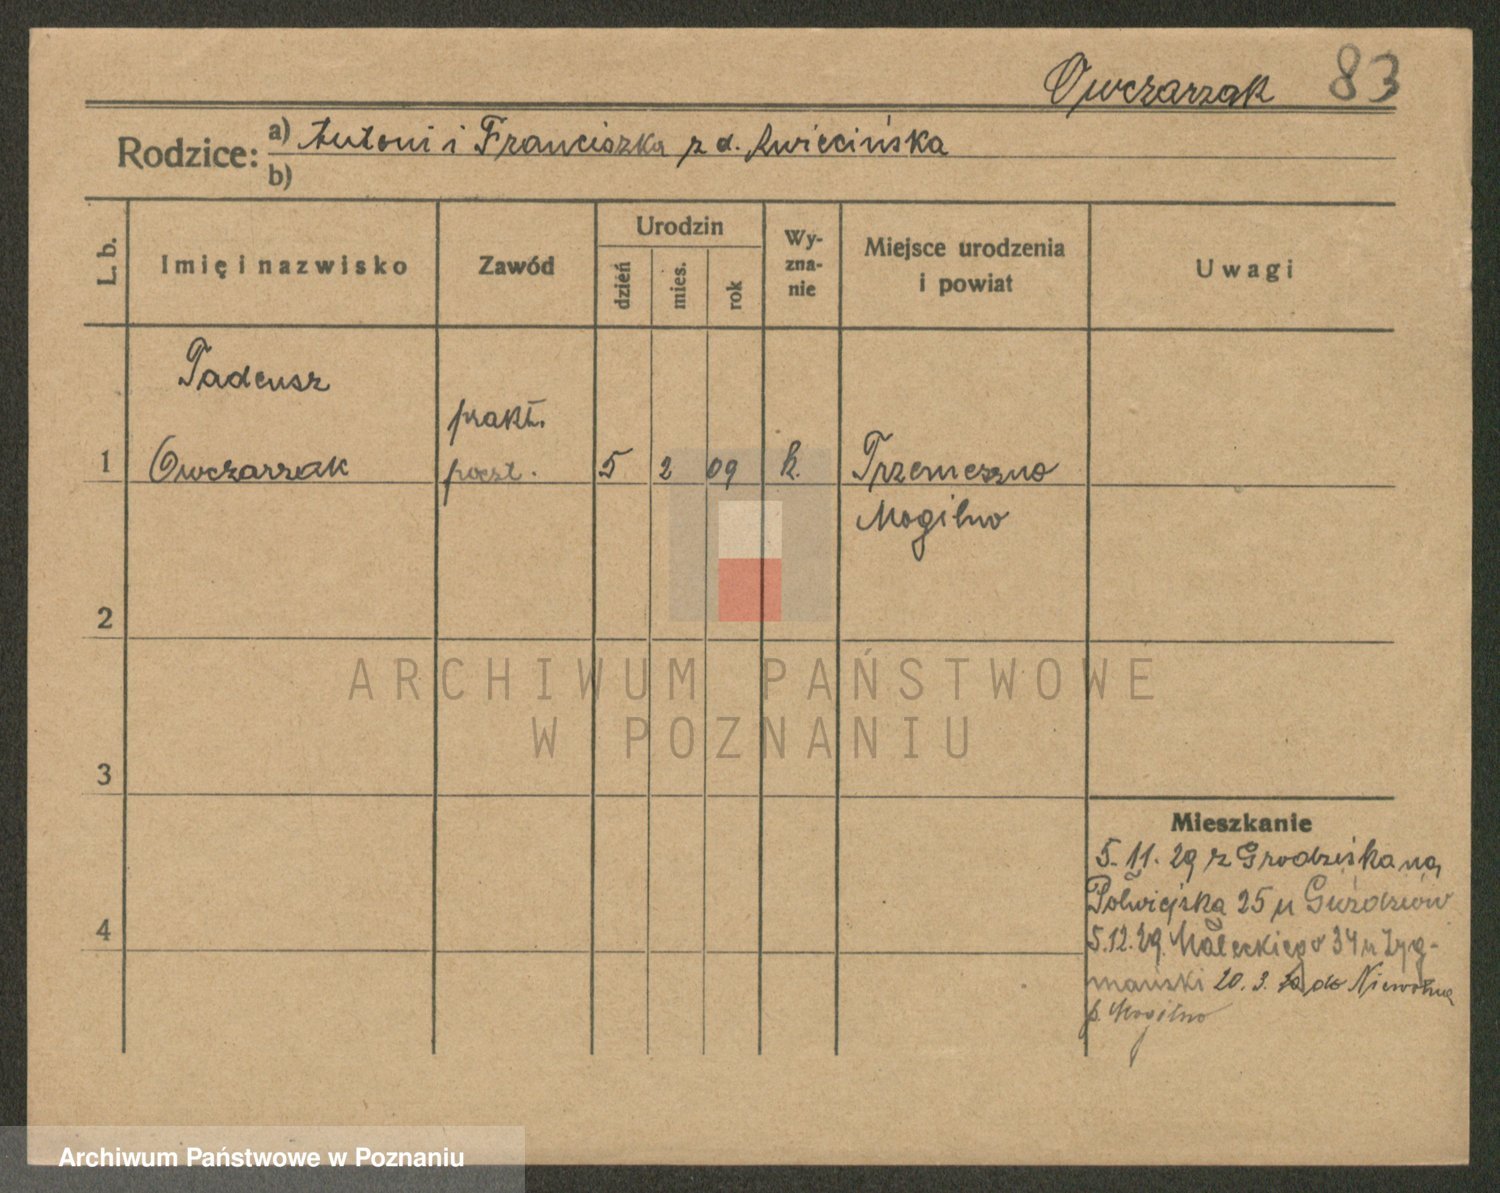 Owczarzak 83
Rodzice: a) Antoni i Franciszka z d. Kwiecińska
b)
L. b.
Imię i nazwisko
Zawód
Urodzin
dzień
mies.
rok
Wy-
zna-
nie
Miejsce urodzenia
i powiat
Uwagi
Tadeusz
prakt.
1 Owczarzak poczt. 5 2 09 k. Trzemeszno
Mogilno
2
ARCHIWUM PAŃSTWOWE
W POZNANIU
3
4
Mieszkanie
5.11.29 z Grodziska na
Półwiejska 25 u
5.12.29. Małeckiego 34 u Zyg-
mański 20.3. do
p. Mogilno
Archiwum Państwowe w Poznaniu